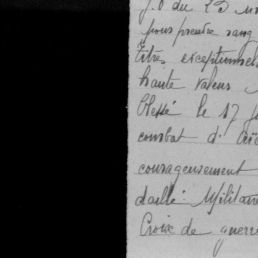 J.O du 23
pour prendre rang
titres exceptionnel
haute valeur
Blessé le 17
combat d'
courageusement
daille Militaire
Croix de guerre